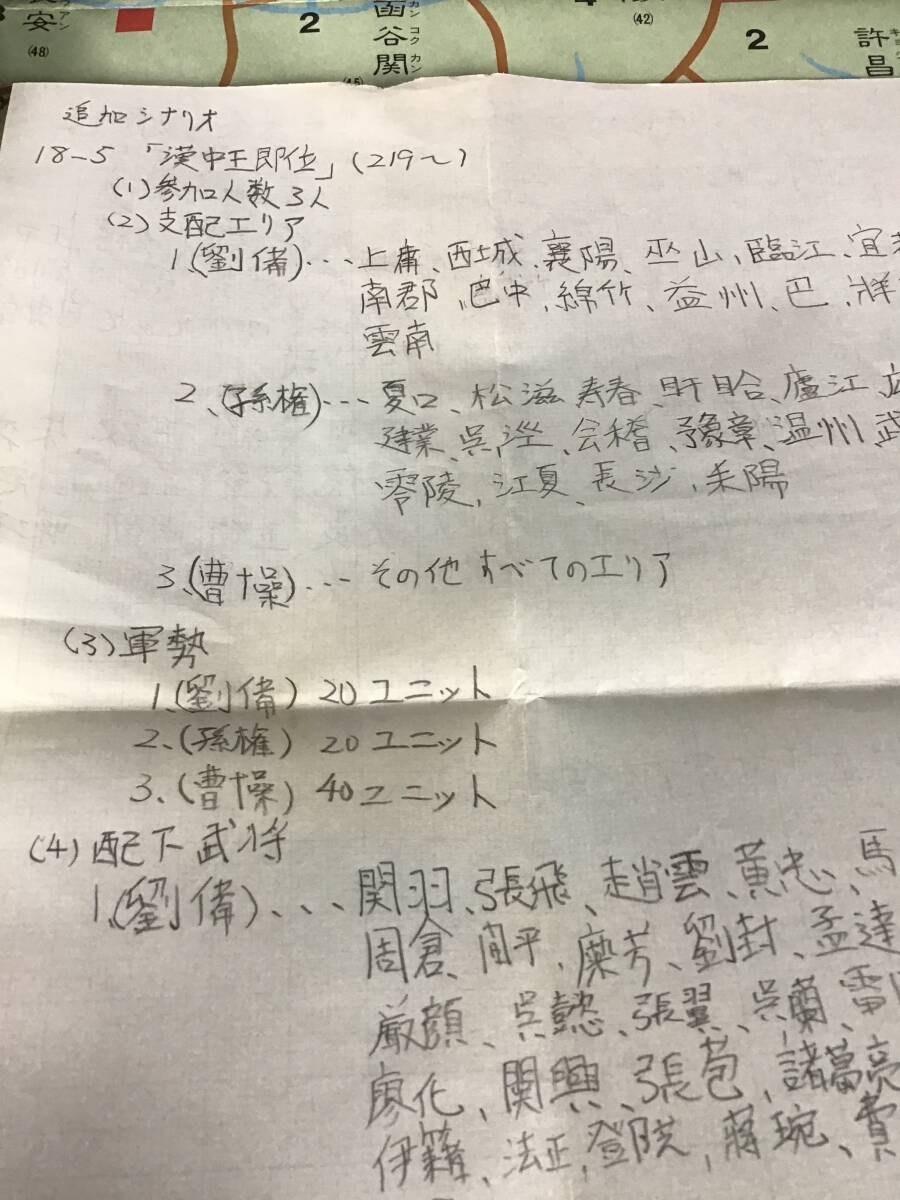 安 アン
(48)
2
函谷関 カンコクカン
(45)
(42)
2
許昌
追加シナリオ
18-5 「漢中王即位」(219~)
(1)参加人数3人
(2)支配エリア
1.(劉備)・・・上庸、西城、襄陽、巫山、臨江、宜
南郡、巴中、綿竹、益州、巴、牂
雲南
2、(孫権)・・・夏口、松滋 寿春、盱眙、廬江、
建業、呉、 会稽、豫章、温州、武
零陵、江夏、長沙、耒陽
3.(曹操)・・・その他すべてのエリア
(3)軍勢
1.(劉備) 20ユニット
2、(孫権) 20ユニット
3.(曹操) 40ユニット
(4)配下武将
1.(劉備)、、、関羽、張飛、趙雲、黄忠、馬
周倉、関平、糜芳、劉封、孟達
厳顔、呉懿、張翼、呉蘭、雷
廖化、関興、張苞、諸葛亮
伊籍、法正、登院、蔣琬、費